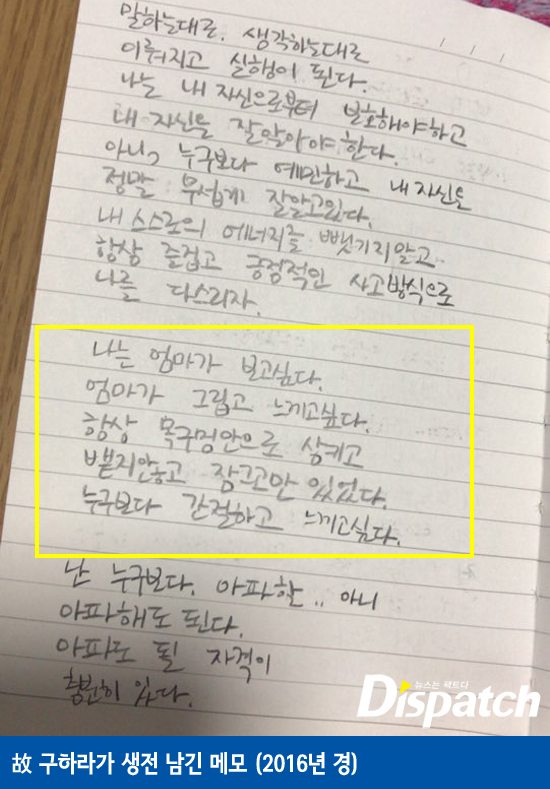 말하는대로. 생각하는대로
이뤄지고 실행이 된다.
나는 내 자신으로부터 보호해야하고
내 자신을 잘알아야 한다.
아니, 누구보다 예민하고 내 자신을
정말 무섭게 잘알고있다.
내 스스로의 에너지를 뺏기지않고
항상 즐겁고 긍정적인 사고방식으로
나를 다스리자.
나는 엄마가 보고싶다.
엄마가 그립고 느끼고싶다.
항상 목구멍안으로 삼키고
뱉지않고 잠그고만 있었다.
누구보다 간절하고 느끼고싶다.
난 누구보다. 아파할.. 아니
아파해도 된다.
아파도 될 자격이
충분히 있다.
뉴스는 팩트다
Dispatch
故 구하라가 생전 남긴 메모 (2016년 경)